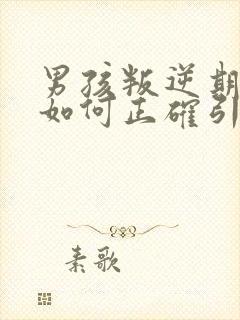 男孩叛逆期
如何正确引
素歌